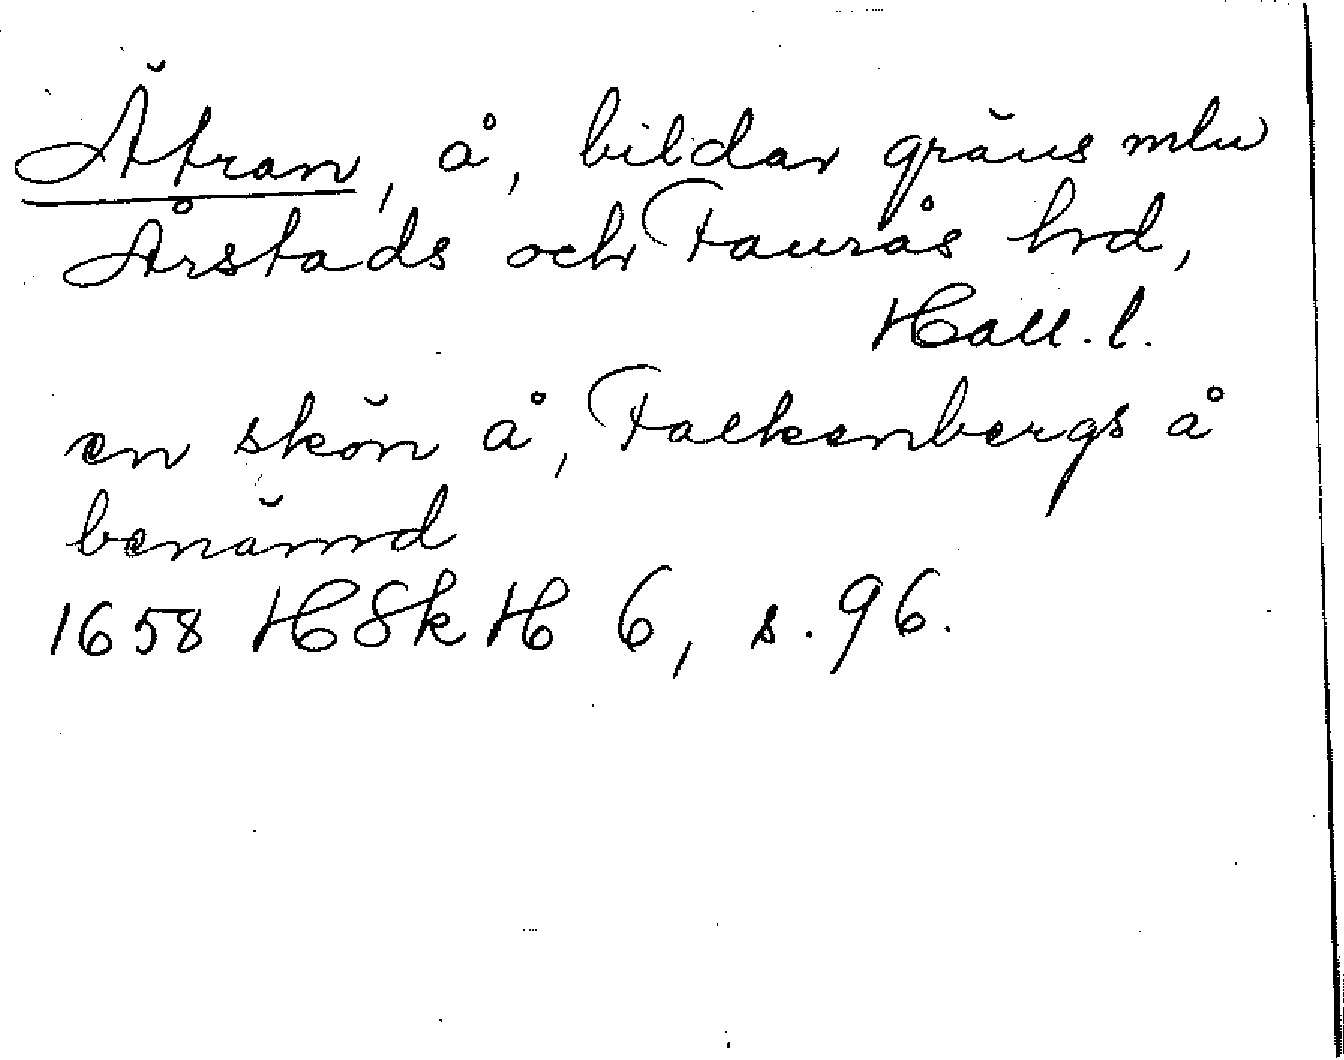 Ätran, å, bildar gräns mln
Årstads och Faurås hrd,
Hall. l.
en skön å, Falkenbergs å
benämd
1658 HSkH 6, s. 96.